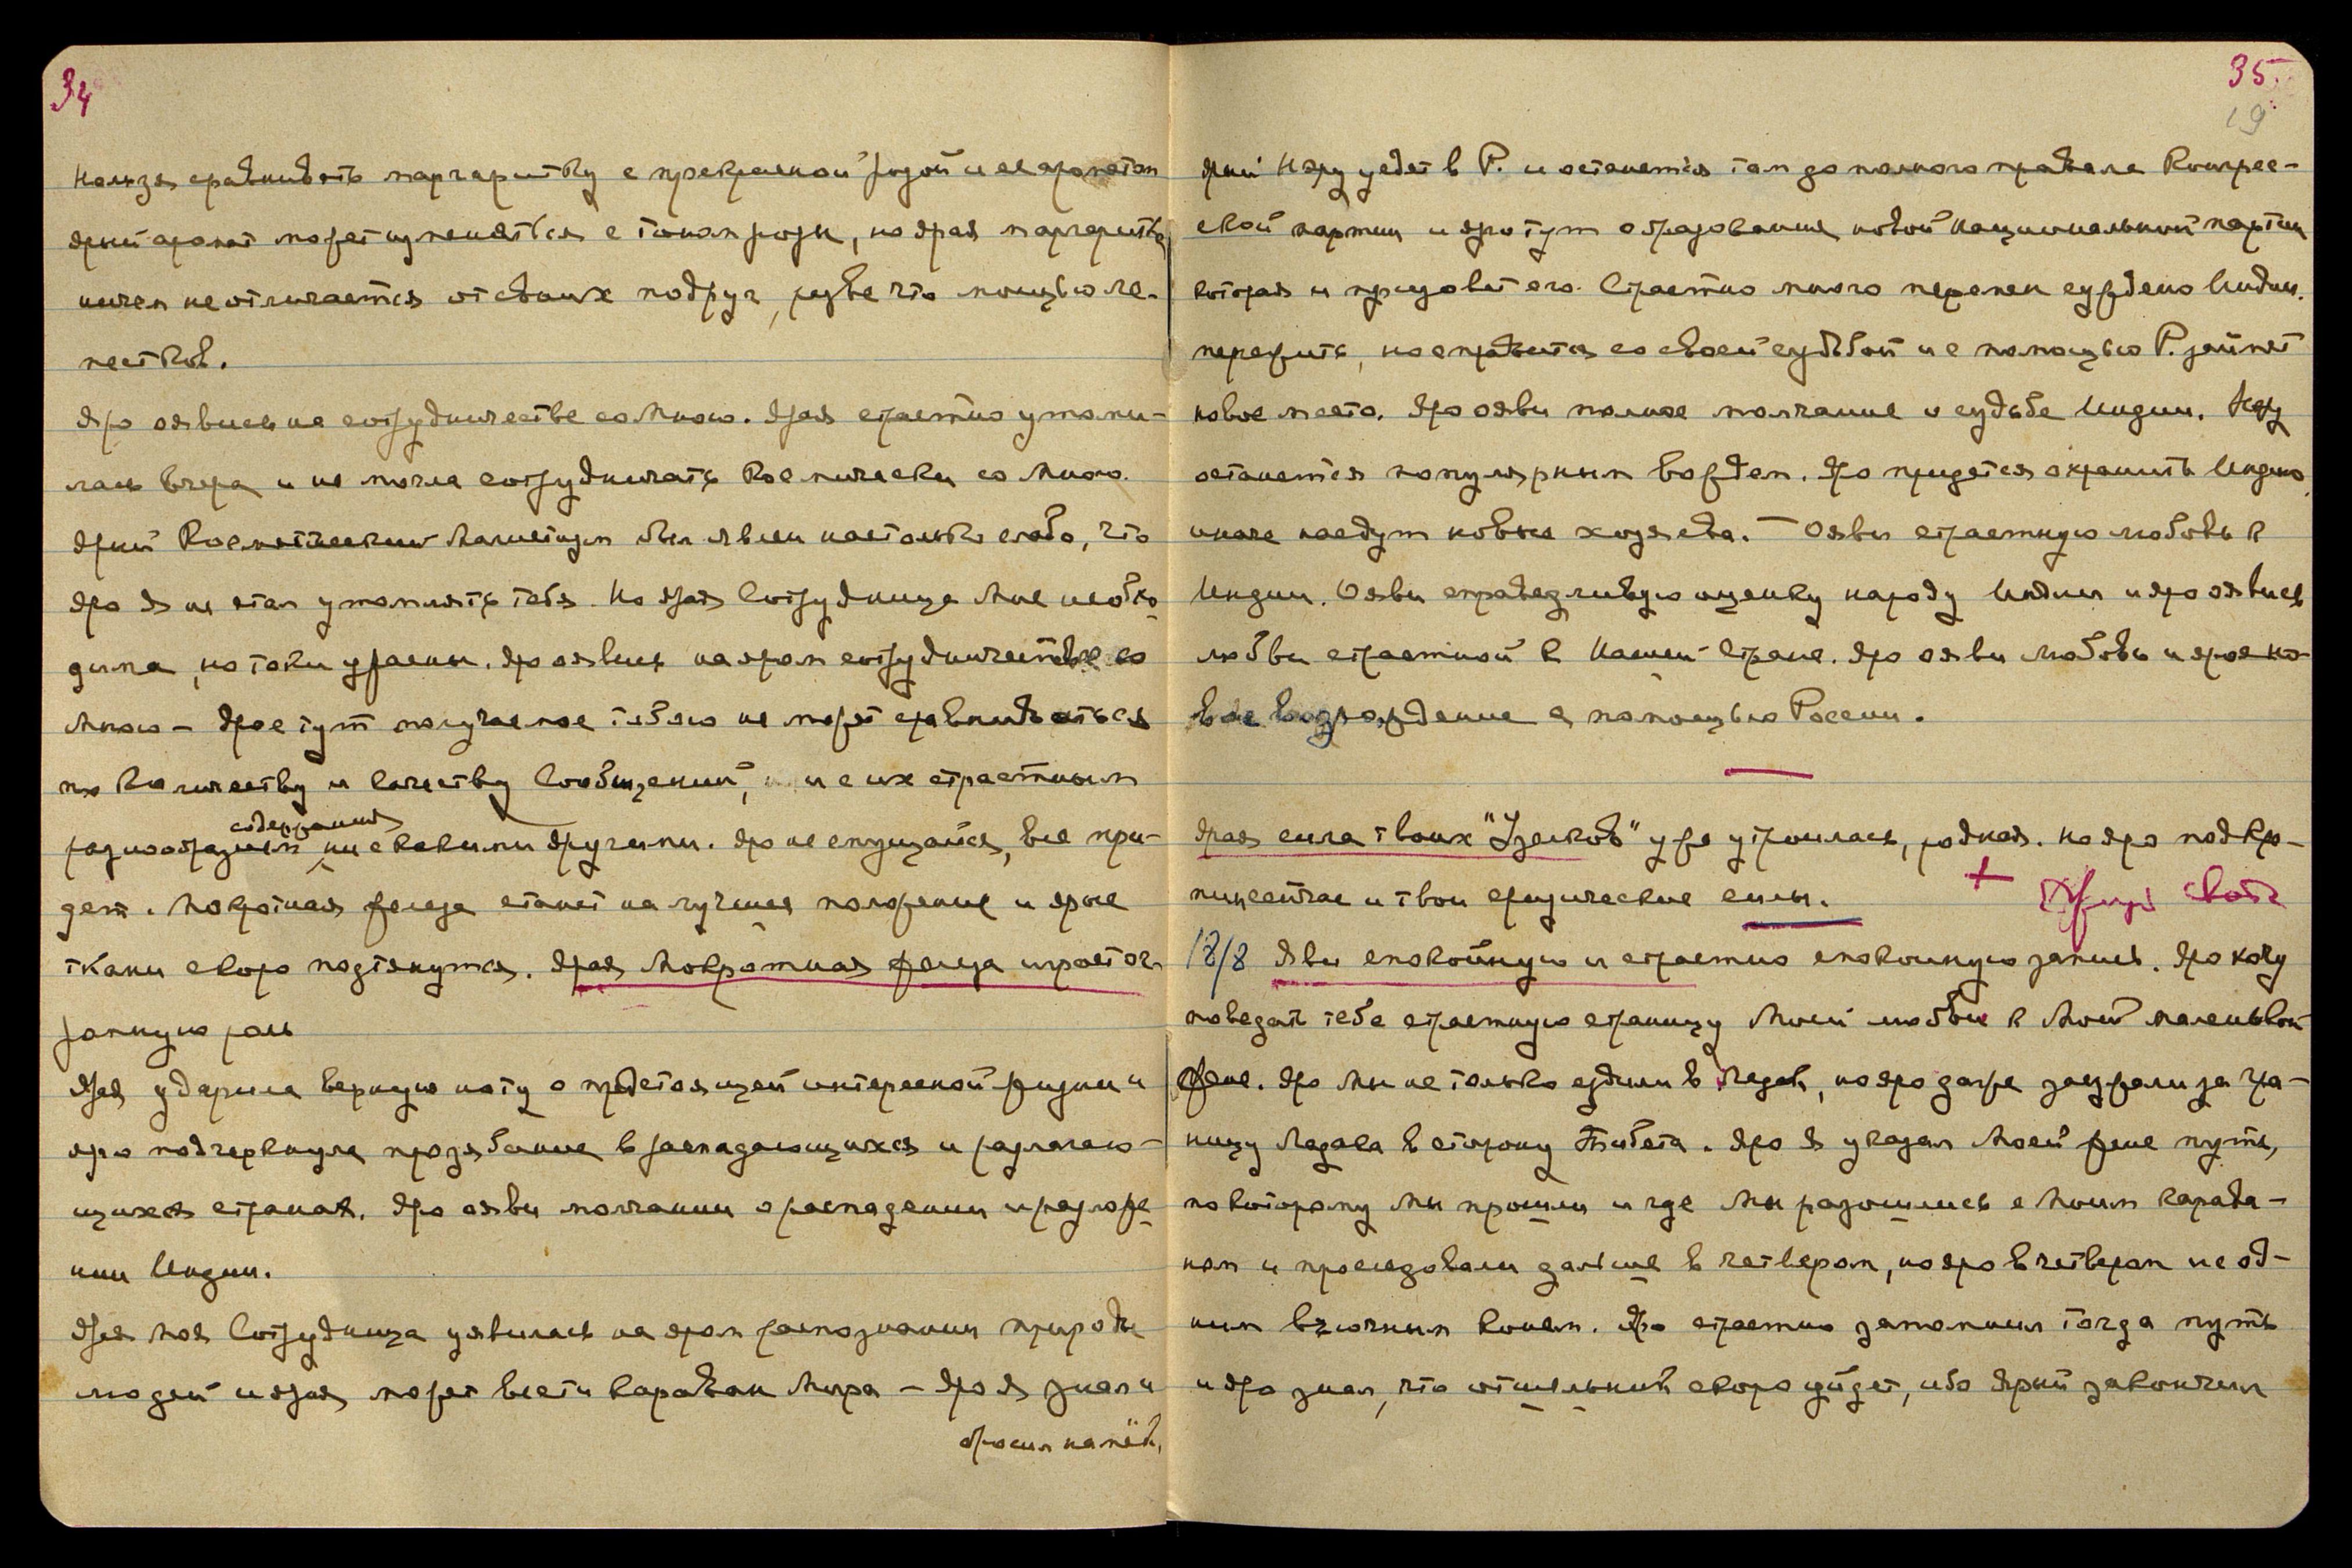 34
нельзя сравнивать маргаритку с прекрасной розой и ее ароматом
ярый аромат может изменяться с тоном розы, но ярая маргаритка
ничем не отличается от своих подруг, разве что мощью ле-
пестков.
Яро оявись на сотрудничестве со Мною. Ярая страстно утоми-
лась вчера и не могла сотрудничать космически со Мною.
Ярый Космический Магнетизм был явлен настолько слабо, что
яро Я не стал утомлять тебя. Но ярая Сотрудница Мне необхо-
дима, но токи ужасны. Яро оявись на яром сотрудничестве со
Мною – Ярое тут получаемое тобою не может сравниваться
по количеству и качеству Сообщений, и с их страстным
содержания
разнообразием ни с какими другими. Яро не смущайся, все при-
дет. Мокротная железа станет на лучшее положение и ярые
ткани скоро подтянутся. Ярая Мокротная железа играет ог-
ромную роль
Ярая ударила верную ноту о предстоящей интересной жизни и
яро подчеркнула прозябание в распадающихся и разлагаю-
щихся странах. Яро ояви молчании о распадении и разложе-
нии Индии.
Ярая Моя Сотрудница уявилась на яром распознании природы
людей и ярая может вести караван Мира – Яро Я знал и
бросил намёк,
35
19
Ярый Неру уедет в Р. и останется там до полного провала Конгрес-
ской партии и яро тут образования новой национальной партии
которая и призовет его. Страстно много перемен суждено Индии.
пережить, но справится со своей судьбой и с помощью Р. займет
новое место. Яро ояви полное молчание о судьбе Индии. Неру
останется популярным вождем. Яро придется охранить Индию,
иначе наедут новые хозяева. – Ояви страстную любовь к
Индии. Ояви справедливую оценку народу Индии и яро оявись
любви страстной к Нашей Стране. Яро ояви любовь и ярое но-
вое возрождение с помощью России.
Ярая сила твоих "Узелков" уже утроилась, родная. Но яро подкре-
пим сейчас и твои физические силы.
18/8 Яви спокойную и страстно спокойную запись. Яро хочу
поведать тебе страстную страницу Моей любви к Моей маленькой
жене. Яро Мы не только ездили в Ладак, но яро даже заезжали за гра-
ницу Ладака в сторону Тибета. Яро Я указал Моей жене путь,
по которому Мы прошли и где Мы разошлись с Моим карава-
ном и проследовали дальше в четвером, но яро в четвером с од-
ним вьючным конем. Яро страстно запомнил тогда путь
и яро знал, что отшельник скоро уйдет, ибо Ярый закончил